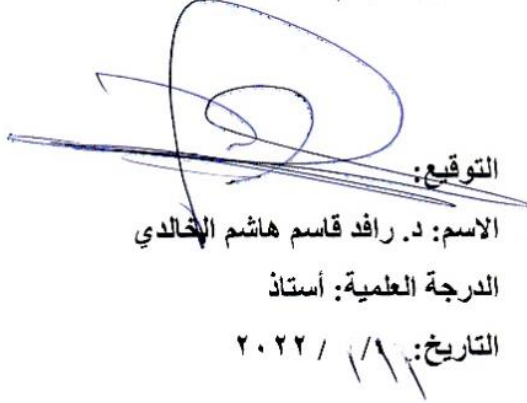 التوقيع:
الاسم: د. رافد قاسم هاشم الخالدي
الدرجة العلمية: أستاذ
التاريخ: / / ٢٠٢٢